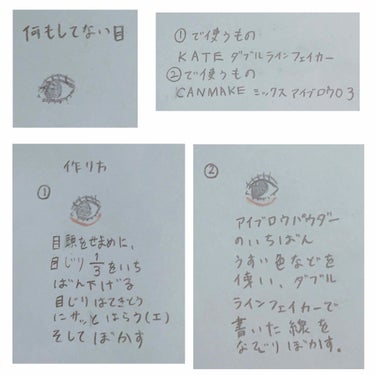 何もしてない目
①で使うもの
KATE ダブルラインフェイカー
②で使うもの
CANMAKE ミックスアイブロウ03
作り方
①
目頭をせまめに、
目じり1/3をいち
ばん下げる
目じりはてきとう
にサッとはらう(エ)
そしてぼかす
②
アイブロウパウダー
のいちばん
うすい色などを
使い、ダブル
ラインフェイカーで
書いた線を
なぞりぼかす。